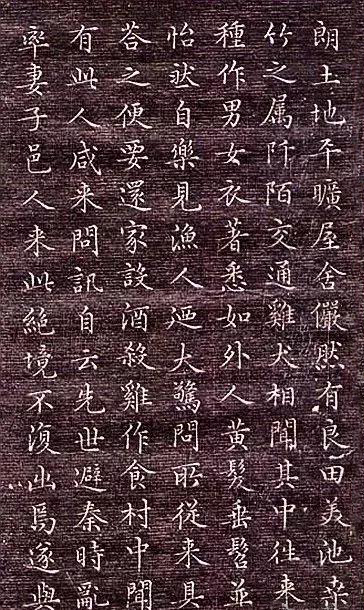 朗土地平曠屋舍儼然有良田美池桒
竹之属阡陌交通雞犬相聞其中徃来
種作男女衣著悉如外人黃髮垂髫並
怡然自樂見漁人迺大驚問所從来具
荅之便要還家設酒殺雞作食村中聞
有此人咸来問訊自云先世避秦時亂
率妻子邑人来此絕境不復出焉遂與